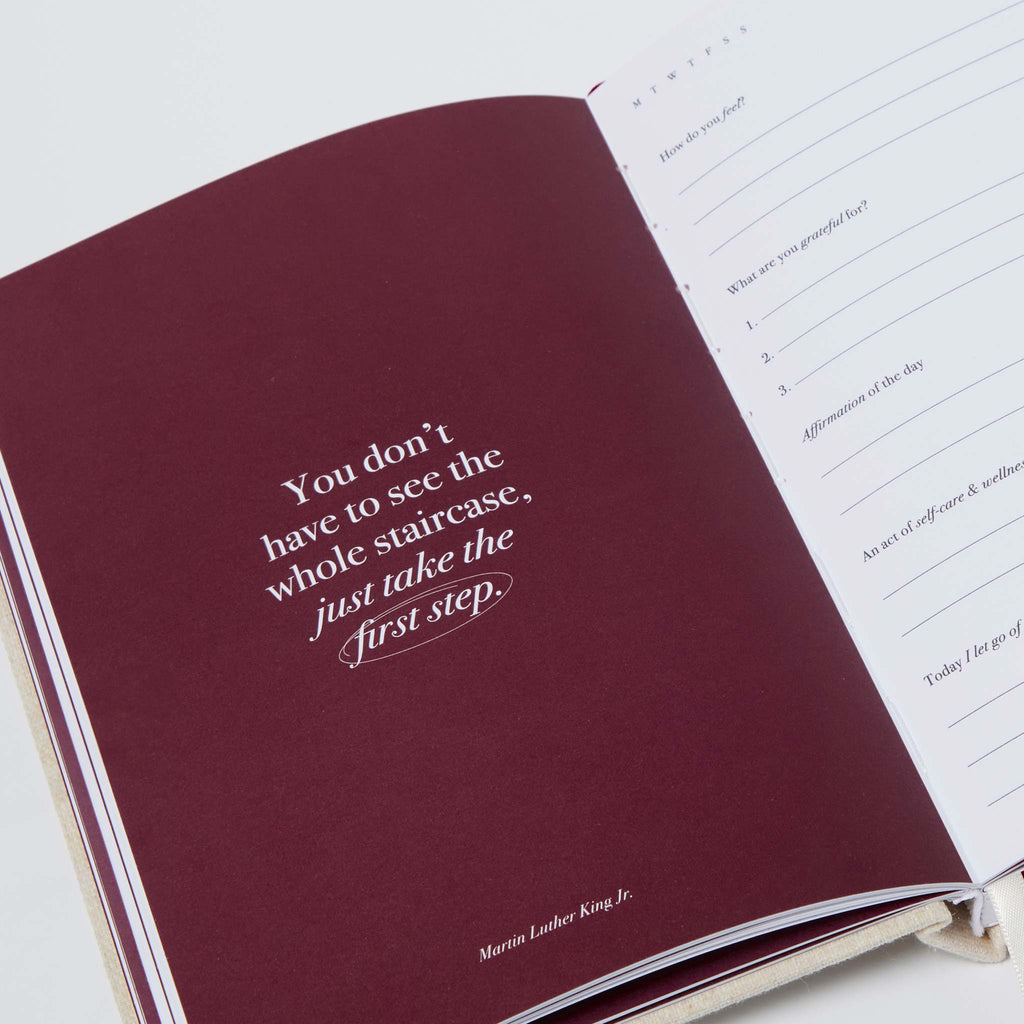 You don't
have to see the
whole staircase,
just take the
first step.
Martin Luther King Jr.
M T W T F S S
How do you feel?
What are you grateful for?
1.
2.
3.
Affirmation of the day
An act of self-care & wellness
Today I let go of